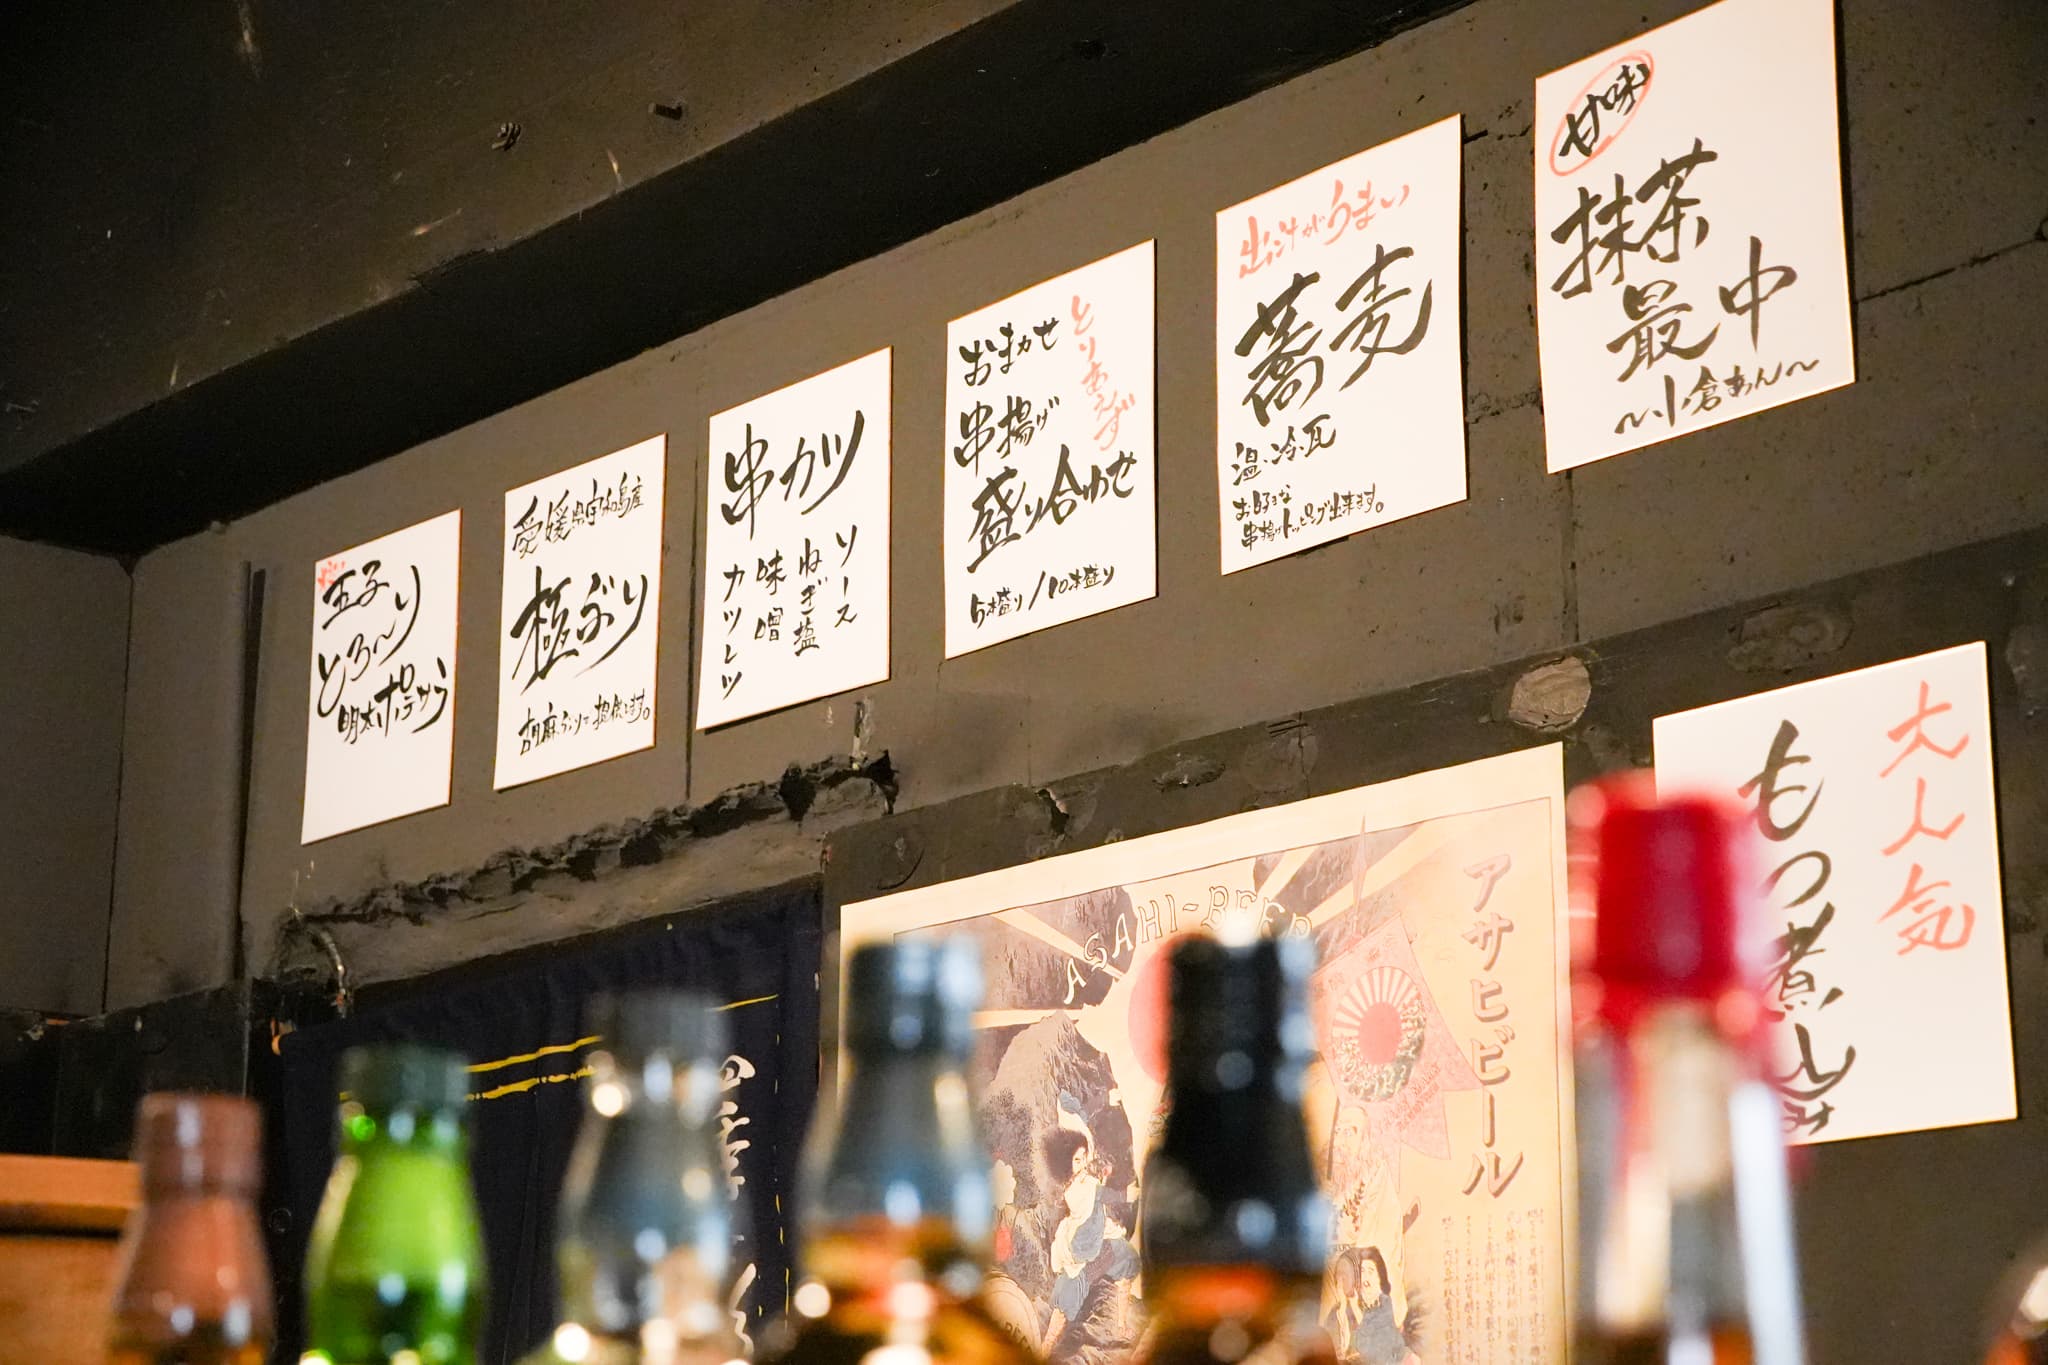 玉子
とろ〜り
明太ポテサラ
愛媛県宇和島産
極ぶり
胡麻ぶりで提供します。
串カツ
ソース
ねぎ塩
味噌
カツレツ
とりあえず
おまかせ
串揚げ
盛り合わせ
5本盛り/10本盛り
出汁がうまい
蕎麦
温・冷・瓦
お好きな
串揚げトッピング出来ます。
甘味
抹茶
最中
〜小倉あん〜
大人気
もつ煮込み
ASAHI-BEER
アサヒビール